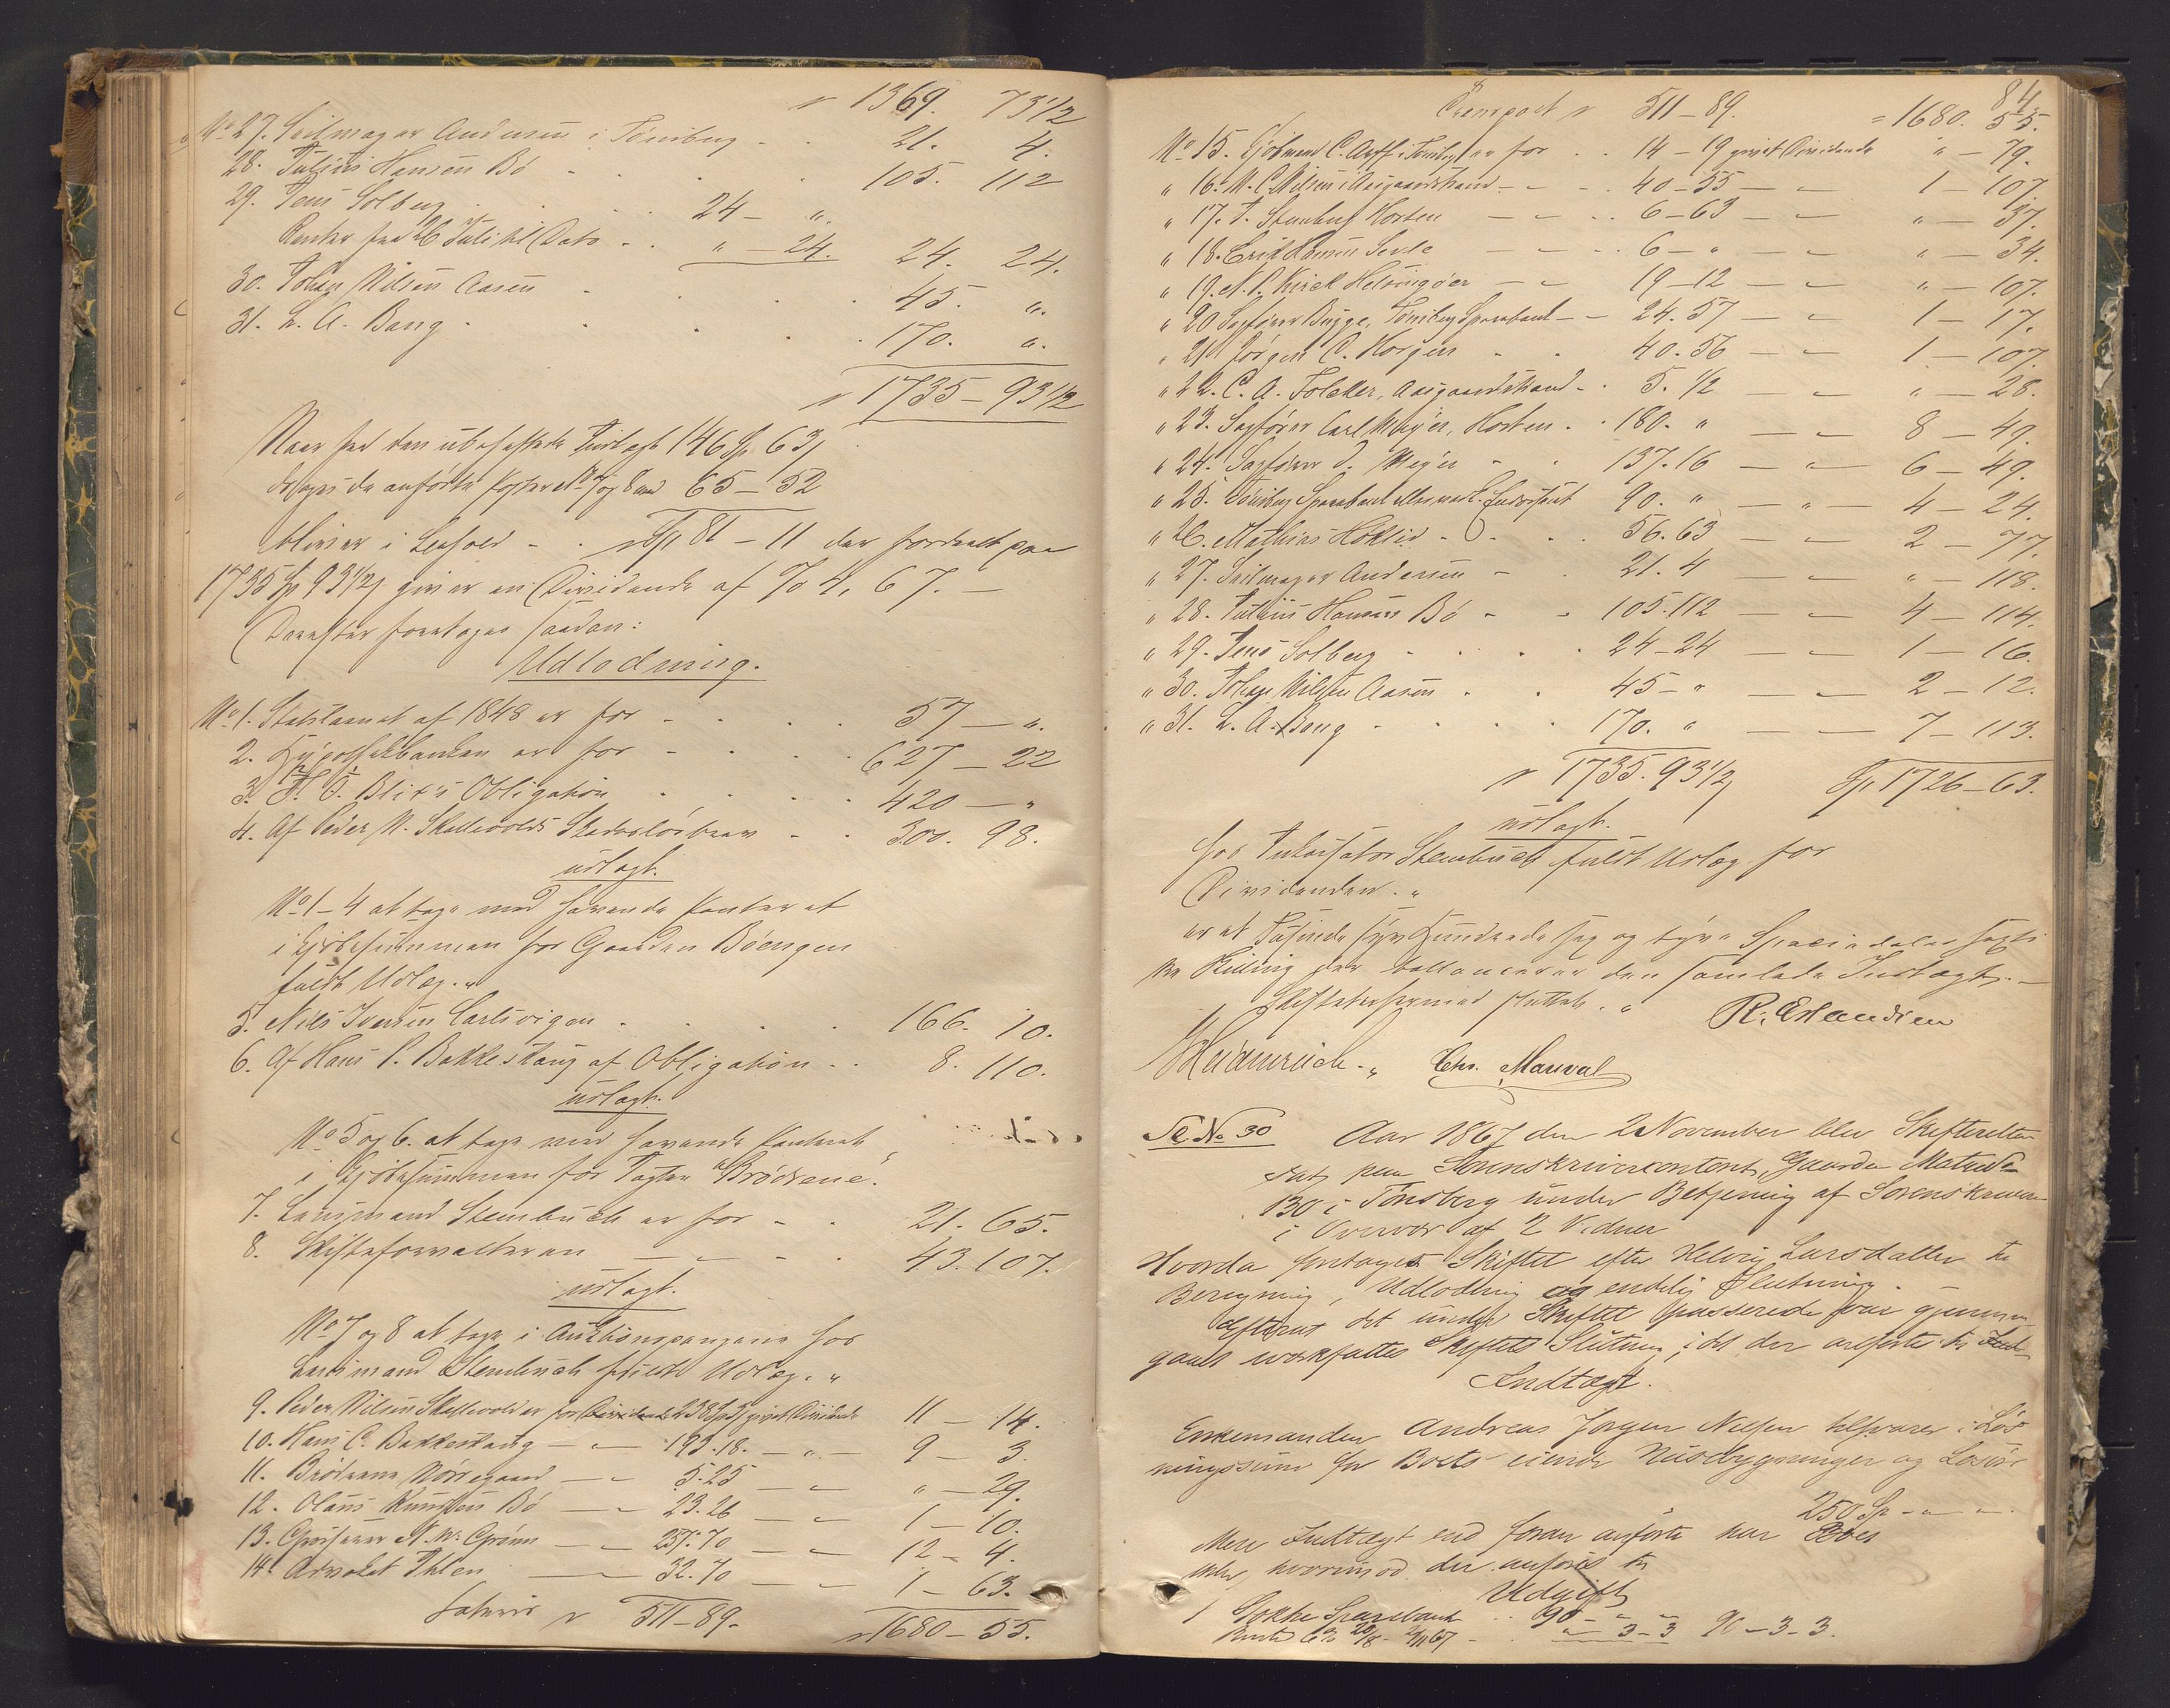 " 1369. 73 1/2
No 27. Seilmager Andersen i Tønsberg . . 21. 4.
28. Julius Hansen Bø . . . 105. 112
29. Jens Solberg . . . 24 – ".
Renter fra 26 Juli til Dato . . " – 24. 24. 24.
30. Johan Nilsen Aasen . . . 45. ".
31. L. A. Bang . . . 170. ".
1735 – 93 1/2
Naar fra den ubehæftede Indtægt 146 Sp. 63
drages de anførte Poster No 7 og 8 med 65 – 52
bliver i Behold . . Sp 81 – 11 der fordeelt paa
1735 Sp 93 1/2 giver en Dividende af % 4, 67. –
Derefter foretoges saadan:
Udlodning.
No 1. Statslaanet af 1848 er for . . . 57 – ".
2. Hypothekbanken er for . . . 627 – 22
3. Obligation . . . 420 – "
4. Af Peder N. Skallevolds Skadesløsbrev . . 300. 98.
udlagt.
No 1–4 at tage med havende Panteret
i Kjøbesummen for Gaarden Bøengen
fuldt Udlæg. "
5. Nils Iversen Carlsvigen . . . 166. 10.
6. Af Hans C. Bakkeskaug af Obligation . . 8. 110.
udlagt.
No 5 og 6. at tage med havende Panteret
i Kjøbesummen for Jagten "Brødrene".
7. Lensmand Steenbuch er for . . 21. 65.
8. Skifteforvalteren . . 43. 107.
udlagt.
No 7 og 8 at tage i Auktionspengene hos
Lensmand Steenbuch fuldt Udlæg. "
9. Peder Nilsen Skallevold er for 238 Sp givet Dividende 11 – 14.
10. Hans C. Bakkeskaug – " – 193. 18. – " – 9 – 3.
11. Brødrene Nørregaard – " – 5. 25 – " – 29.
12. Olaus Knudsen Bø – " – 23. 26 – " – 1 – 10.
13. Grosserer N. W. Grønn – " – 257. 70 – " – 12 – 4.
14. Advokat Ihlen – " – 32. 70 – " – 1 – 63.
Lateris " 511 – 89. " 1680 – 55.
84.
Transport " 511 – 89. = 1680. 55.
No 15. Kjøbmand C. Anff i Tønsberg er for . . 14 – 19 givet Dividende " – 79.
" 16. M. C. Nilsen i Aasgaardstrand – " – 40 – 55 – " – 1 – 107.
" 17. J. Steenbuch Horten – " – 6 – 63 – " – " – 37.
" 18. Erik Hansen – " – 6 – " – " – " – 34.
" 19. N. P. Kirck Helsingøer – " – 19 – 12 – " – " – 107.
" 20 Sagfører Bugge, Tønsberg Sparebank – " 24. 57 – " – 1 – 17.
" 21 Jørgen C. Horgen . . 40. 56 – " – 1 – 107.
" 22. C. A. Folcker, Aasgaardstrand – . 5. 1/2 – " – " – 28.
" 23. Sagfører Carl Meyer, Horten . . 180. " – " – 8 – 49.
" 24. Sagfører J. Meyer . . 137. 16 – " – 6 – 49.
" 25. Tønsberg Sparebank 90. " – " – 4 – 24.
" 26. Mathias Høklid . . . 56. 63 – " – 2 – 77.
" 27. Seilmager Andersen – . 21. 4 – " – " – 118.
" 28. Julius Hansen Bø – – 105. 112 – " – 4 – 114.
" 29. Jens Solberg . . . 24 – 24 – " – 1 – 16.
" 30. Johan Nilsen Aasen . . 45 – " – " – 2 – 12.
" 31. L. A. Bang . . . 170. " – " – 7 – 113.
" 1735. 93 1/2 Sp. 1726 – 63.
udlagt.
hos Steenbuch fuldt Udlæg for
Dividenden. "
er et Tusinde syv Hundrede sex og tyve Speciedaler sexti
tre Skilling der ballancerer den samlede Indtægt. –
Skiftet hermed sluttet. " R. Erlandsen
Heidenreich. " Chr. Manval
Sk. No 30 Aar 1867 den 2 November blev Skifteretten
sat paa Sorenskriverkontoret, Gaarden Matr No
130 i Tønsberg under Betjening af Sorenskriveren
i Overvær af 2 Vidner
Hvorda foretoges Skiftet efter Helvig Larsdatter til
Beregning, Udlodning og endelig Slutning. –
Efterat det under Skiftet passerede var gjennem-
gaaet forfattes Skiftets Slutning, idet der anførte til
Indtægt.
Enkemanden Andreas Jørgen Nielsen tilsvarer i Løs
ningssum for Boets eiende Husbygninger og Løsøre
250 Sp – " – ".
Mere Indtægt end foran anførte har Boet
ikke, hvorimod der anføres til
Udgift
1 Sparebank . . 90 – " – "
Rente 6% 20/8 – 2/11 67 – . . " – 3 – 3 90 – 3 – 3.